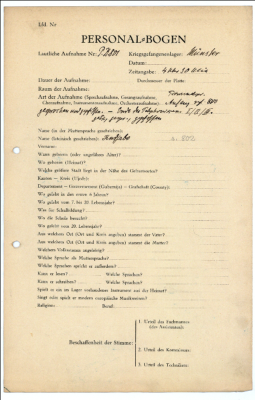 Lfd. Nr
PERSONAL-BOGEN
Lautliche Aufnahme Nr.: Kriegsgefangenenlager: Münster
Datum:
Zeitangabe:
Dauer der Aufnahme: Durchmesser der Platte:
Raum der Aufnahme:
Art der Aufnahme (Sprechaufnahme, Gesangsaufnahme,
Choraufnahme, Instrumentenaufnahme, Orchesteraufnahme):
gesprochen und gepfiffen.
Name (in der Muttersprache geschrieben):
Name (lateinisch geschrieben):
Vorname:
Wann geboren (oder ungefähres Alter)?
Wo geboren (Heimat)?
Welche größere Stadt liegt in der Nähe des Geburtsortes?
Kanton — Kreis (Ujedz):
Department — Gouvernement (Gubernija) — Grafschaft (County):
Wo gelebt in den ersten 6 Jahren?
Wo gelebt vom 7. bis 20. Lebensjahr?
Was für Schulbildung?
Wo die Schule besucht?
Wo gelebt vom 20. Lebensjahr?
Aus welchem Ort (Ort und Kreis angeben) stammt der Vater?
Aus welchem Ort (Ort und Kreis angeben) stammt die Mutter?
Welchem Volksstamm angehörig?
Welche Sprache als Muttersprache?
Welche Sprachen spricht er außerdem?
Kann er lesen? Welche Sprachen?
Kann er schreiben? Welche Sprachen?
Spielt er ein im Lager vorhandenes Instrument aus der Heimat?
Singt oder spielt er modern europäische Musikweisen?
Religion: Beruf:
1. Urteil des Fachmannes
(des Assistenten):
Beschaffenheit der Stimme:
2. Urteil des Kommissars:
3. Urteil des Technikers: